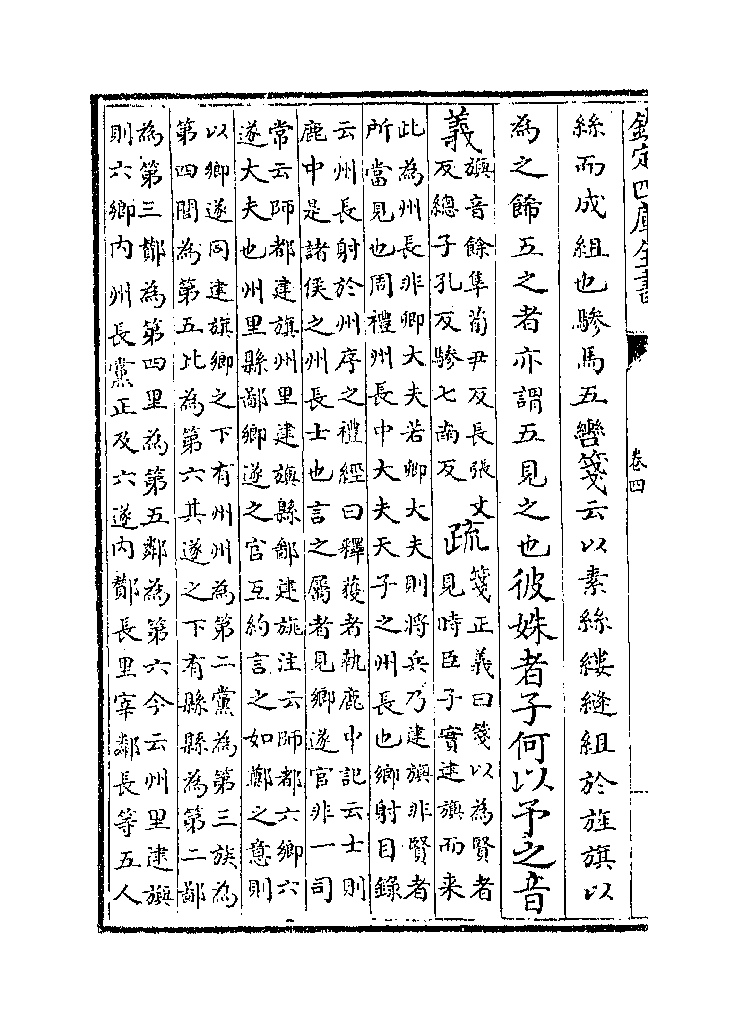 欽定四庫全書
卷四
絲而成組也驂馬五轡箋云以素絲縷縫組於旌旗以
為之飾五之者亦謂五見之也彼姝者子何以予之音
義
旟音餘隼荀尹反長張丈
反總子孔反驂七南反
疏
箋正義曰箋以為賢者
見時臣子實建旟而來
此為州長非卿大夫若卿大夫則將兵乃建旟非賢者
所當見也周禮州長中大夫天子之州長也鄉射目錄
云州長射於州序之禮經曰釋獲者執鹿中記云士則
鹿中是諸侯之州長士也言之屬者見鄉遂官非一司
常云師都建旗州里建旟縣鄙建旐注云師都六鄉六
遂大夫也州里縣鄙鄉遂之官互約言之如鄭之意則
以鄉遂同建旗鄉之下有州州為第二黨為第三族為
第四閭為第五比為第六其遂之下有縣縣為第二鄙
為第三酇為第四里為第五鄰為第六今云州里建旟
則六鄉內州長黨正及六遂內酇長里宰鄰長等五人